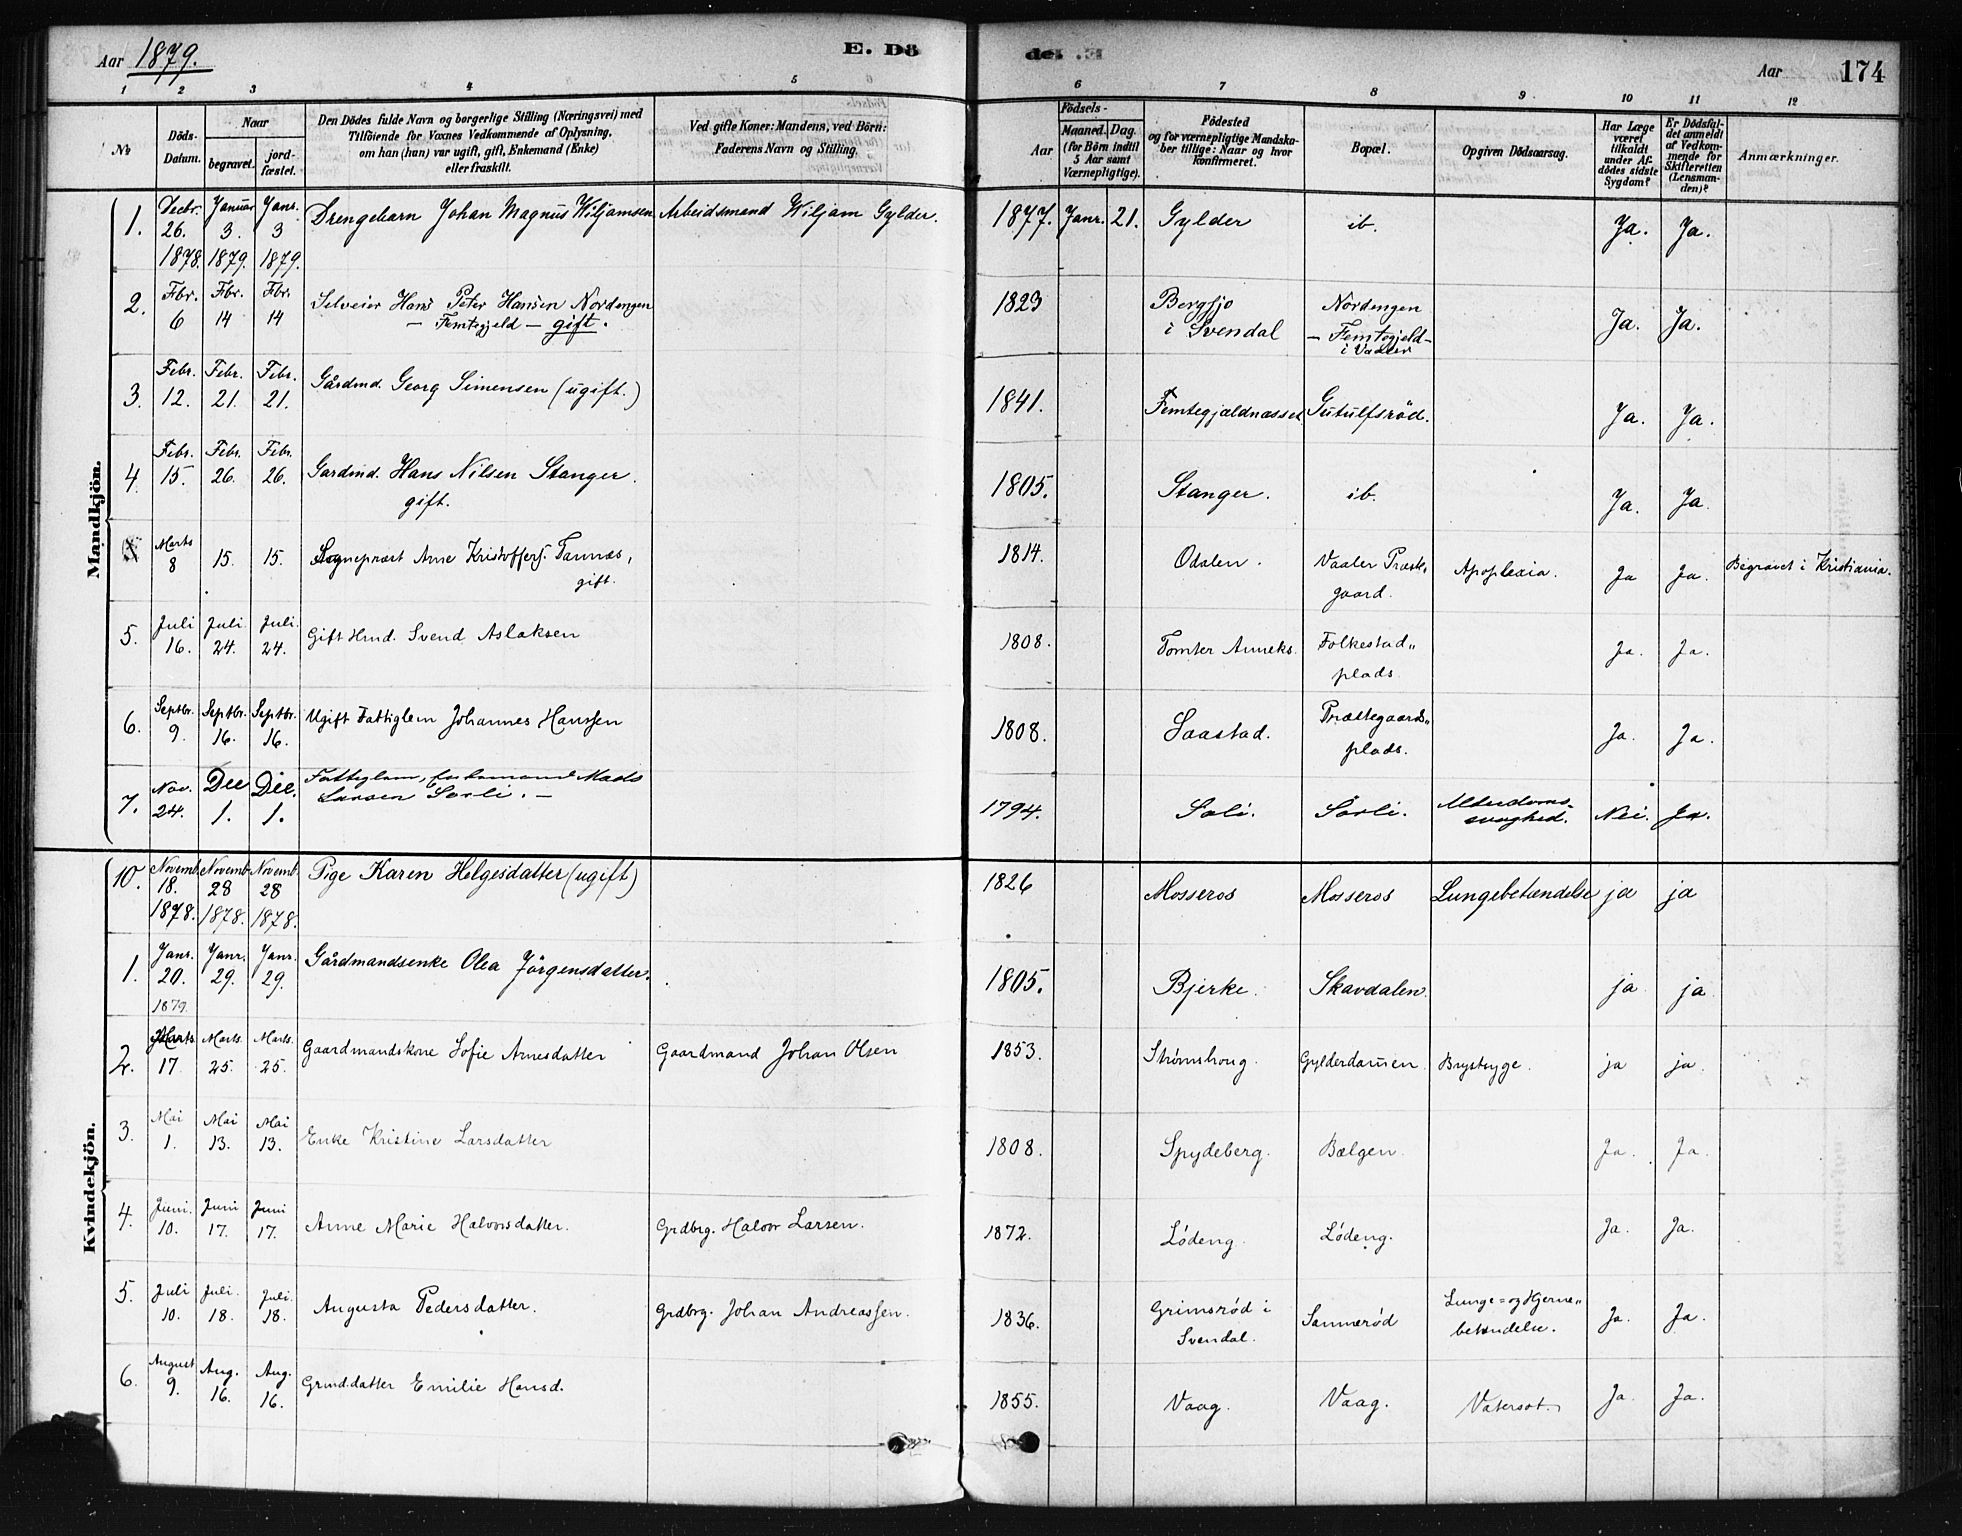 Aar 1879. E. Dö
de. .E Aar 174
1 2 3 4 5
6 7 8 9 10 11 12
№ Döds-Datum. Naar begravet. jordfæstet. Den Dödes fulde Navn og borgerlige Stilling (Næringsvei) med Tilföiende for Voxnes Vedkommende af Oplysning, om han (hun) var ugift, gift, Enkemand (Enke) eller fraskilt. Ved gifte Koner: Mandens, ved Börn: Faderens Navn og Stilling.
Aar Födsels- Maaned. Dag. (for Börn indtil 5 Aar samt Værnepligtige). Födested og for værnepligtige Mandskaber tillige: Naar og hvor konfirmeret. Bopæl. Opgiven Dödsaarsag. Har Læge været tilkaldt under Afdödes sidste Sygdom? Er Dödsfaldet anmeldt af Vedkommende for Skifteretten (Lensmanden)? Anmærkninger.
Mandkjön.
1. Decbr. 26. 1878. Januar 3. 1879. Janr. 3 1879. Drengebarn Johan Magnus Wiljamsen Arbeidsmand Wiljam Gylder. 1877. Janr. 21. Gylder ib. Ja. Ja.
2. Fbr. 6 Fbr. 14 Fbr. 14 Selveier Hans Peter Hansen Nordengen
— Femtegjeld — gift. 1823 Bergsjø i Svendal Nordengen — Femtegjeld — i Vaaler Ja. Ja.
3. Febr. 12. Febr. 21. Febr. 21. Gårdmd. Georg Simensen (ugift.) 1841. Femtegjældnæsset Gutulfsrød. Ja. Ja.
4. Febr. 15. Febr. 26. Febr. 26. Gardmd. Hans Nilsen Stanger.
gift. 1805. Stanger. ib. Ja. Ja
Marts 8 15. 15. Sogneprest Arne Kristoffers. Tannæs,
gift. 1814. Odalen. Vaaler Præstegaard. Apoplexia. Ja Ja. Begravet i Kristiania.
5. Juli 16. Juli 24. Juli 24. Gift Hmd. Svend Aslaksen 1808. Tomter Anneks. Folkestad" plads. Ja. Ja.
6. Septbr. 9. Septbr. 16. Septbr. 16. Ugift Fattiglem Johannes Hanssen 1808. Saastad. Præstegaards" plads. Ja. Ja.
7. Nov. 24. Dec 1. Dec. 1. Fattiglem, Enkemand Mads
Larsen Sorli. — 1794. Soli. Sörli. Alderdoms- svaghed. Nei. Ja.
Kvindekjön.
10. Novemb. 18. 1878. Novemb. 28 1878. Novemb. 28 1878. Pige Karen Helgesdatter (ugift) 1826 Mosseros Mosseros Lungebetændelse ja ja
1. Janr. 20. 1879. Janr. 29. Janr. 29. Gårdmandsenke Olea Jörgensdatter. 1805. Bjerke. Skavdalen. ja ja
2. Marts. 17. Marts. 25. Marts. 25. Gaardmandskone Sofie Arnesdatter Gaardmand Johan Olsen 1853. Strømshoug. Gylderdammen. Brystsyge. ja ja.
3. Mai 1. Mai 13. Mai 13. Enke Kristine Larsdatter 1808. Spydeberg. Bælgen. Ja. Ja.
4. Juni. 10. Juni 17. Juni 17. Anne Marie Halvorsdatter. Grdbrg. Halvor Larsen. 1872. Lødeng. Lødeng. Ja. Ja.
5. Juli 10. Juli. 18. Juli. 18. Augusta Pedersdatter. Grdbrg. Johan Andreassen. 1836. Grimsrød i Svendal. Sannerød Lunge= og Hjerne" betændelse. Ja. Ja.
6. August 9. Aug. 16. Aug. 16. Grmd.datter Emilie Hansd. 1855. Vaag. Vaag. Vatersot. Ja. Ja.